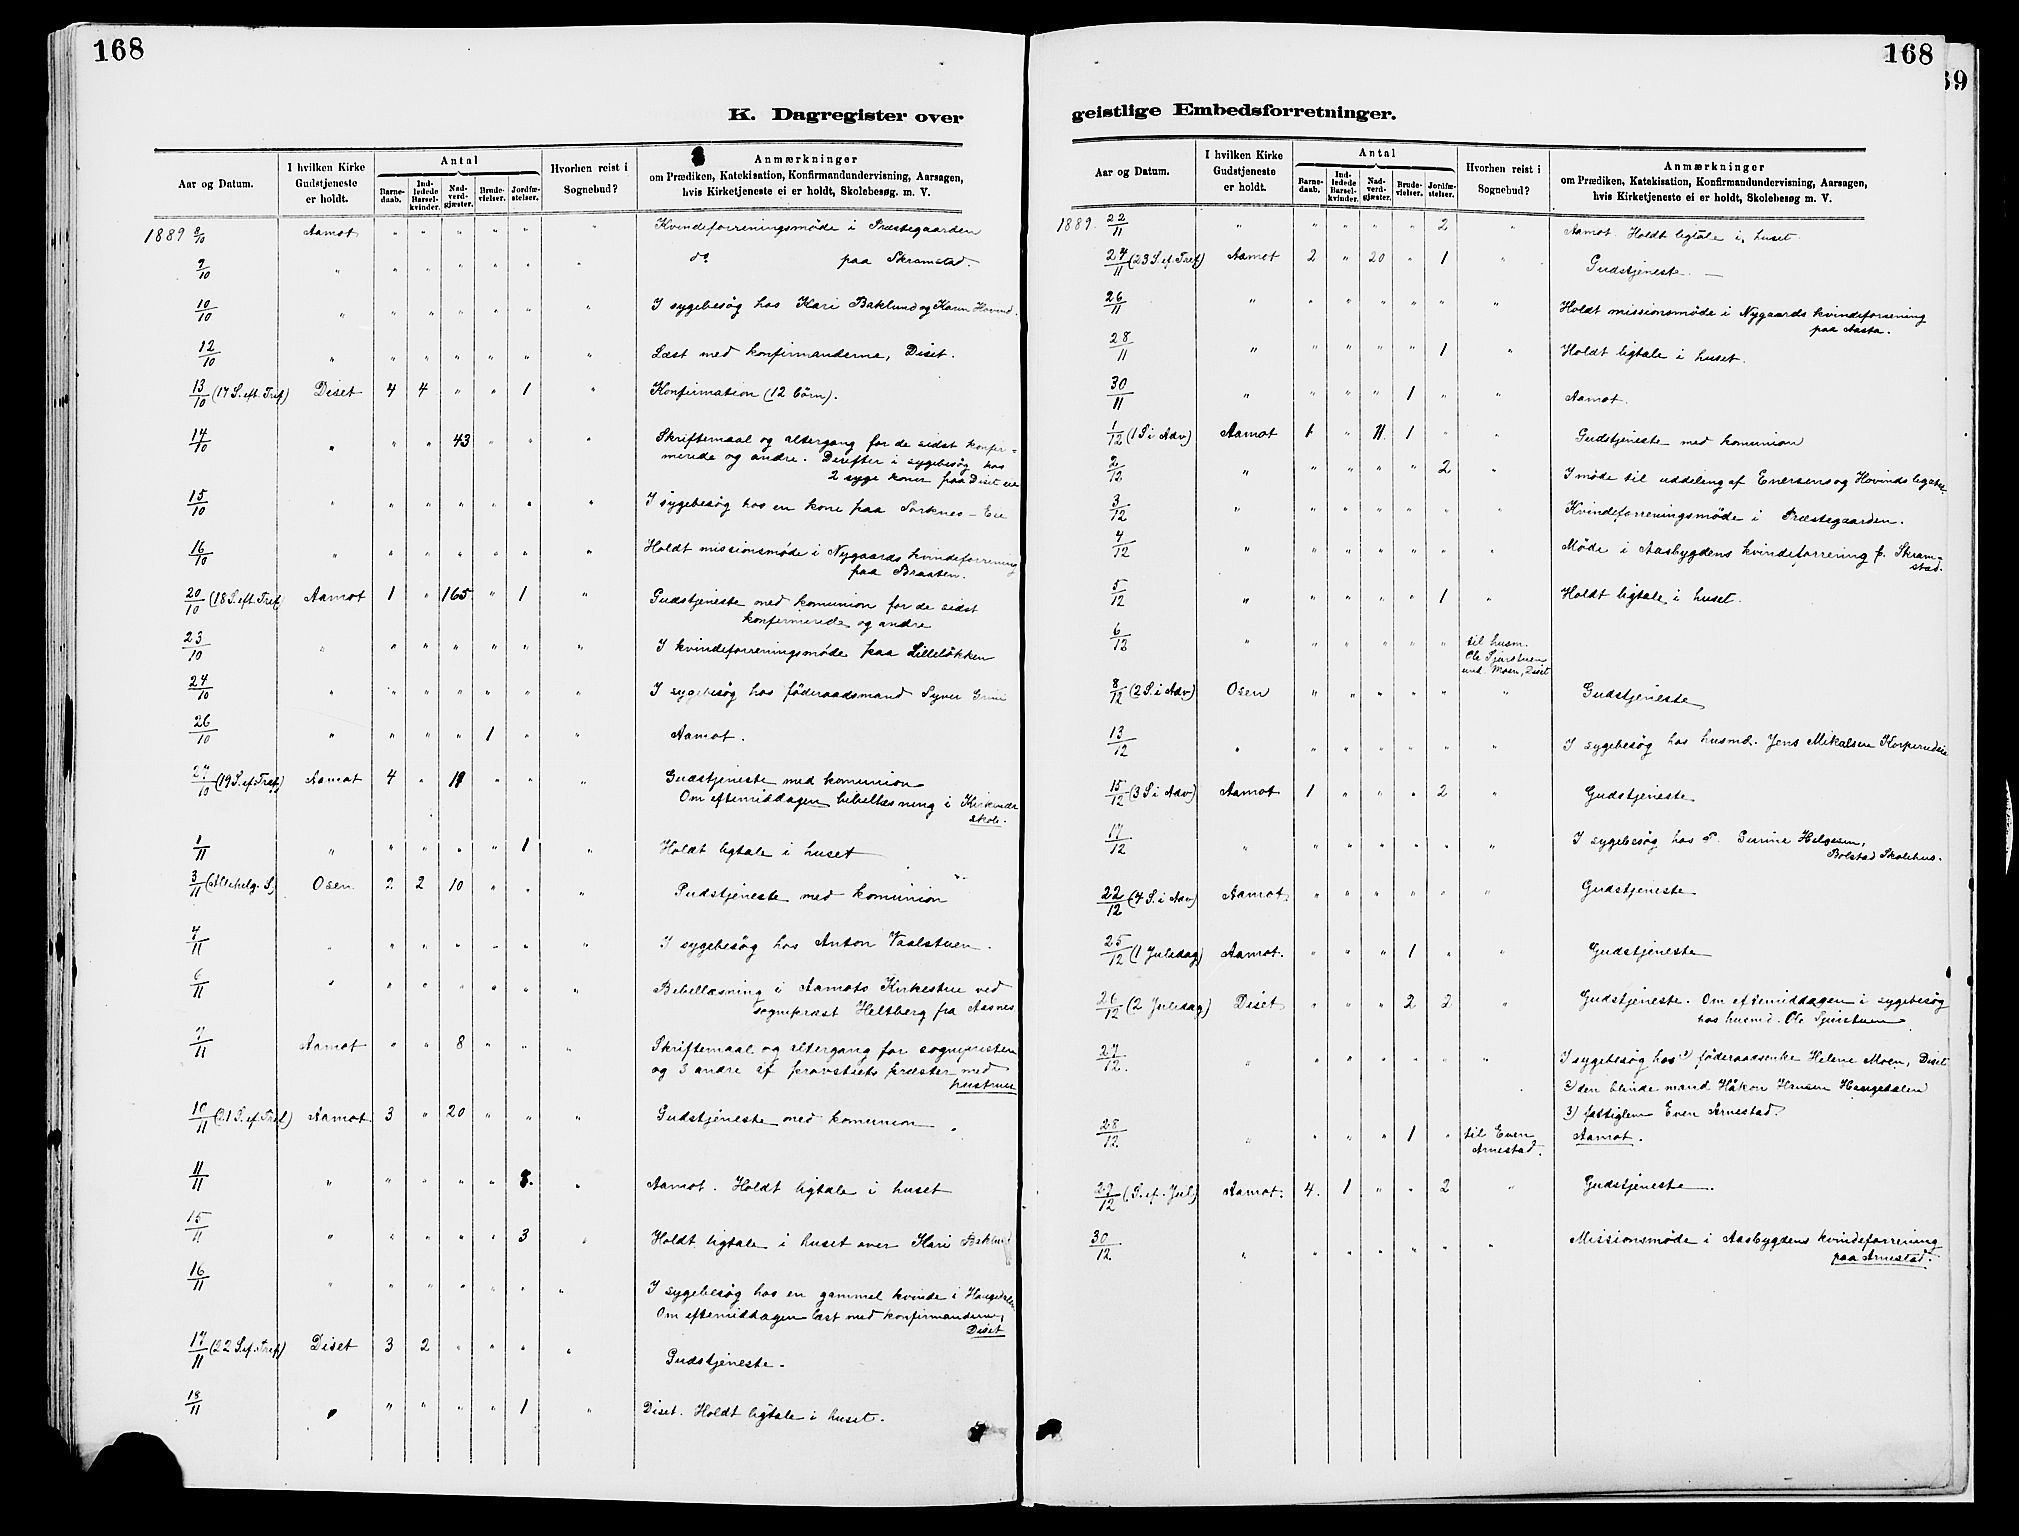 168
K. Dagregister over
Aar og Datum. I hvilken Kirke Gudstjeneste er holdt. Antal Barnedaab. Indledede Barselkvinder. Nadverdgjæster. Brudevielser. Jordfæstelser. Hvorhen reist i Sognebud? Anmærkninger om Prædiken, Katekisation, Konfirmandundervisning, Aarsagen, hvis Kirketjeneste ei er holdt, Skolebesøg. m. V.
1889 8/10 Aamot " " " " " " Kvindeforreningsmøde i Præstegaarden
9/10 " " " " " " " do paa Skramstad.
10/10 " " " " " " " I sygebesøg hos Kari Baklund og Karen Hovind.
12/10 " " " " " " " Læst med konfirmanderne, Diset.
13/10 (17 S. eft. Tref) Diset 4 4 " " 1 " Konfirmation (12 börn).
14/10 " " " 43 " " " Skriftemaal og altergang for de sidst konfir-
merede og andre. Derefter i sygebesøg hos
2 syge koner paa Diset eie
15/10 " " " " " " " I sygebesøg hos en kone paa Sorknes-Eie
16/10 " " " " " " " Holdt missionsmøde i Nygaards kvindeforrening
paa Braaten.
20/10 (18 S. eft. Tref) Aamot 1 " 165 " 1 " Gudstjeneste med komunion for de sidst
konfirmerede og andre
23/10 " " " " " " " I kvindeforreningsmøde paa Lilleløkken
24/10 " " " " " " " I sygebesøg hos föderaadsmand Syver
26/10 " " " " 1 " " Aamot.
27/10 (19 S. ef. Tref) Aamot 4 " 11 " " " Gudstjeneste med komunion
Om eftemiddagen bibellæsning i
skole.
1/11 " " " " " 1 " Holdt ligtale i huset
3/11 (Allehelg. S) Osen 2 2 10 " " " Gudstjeneste med komunion
4/11 " " " " " " " I sygebesøg hos Anton Vaalstuen.
6/11 " " " " " " " Bibellæsning i Aamots Kirkestue ved
sogneprest Heltberg fra Aasnes
7/11 Aamot " " 8 " " " Skriftemaal og altergang for sognepresten
og 3 andre af provstiets præster med
hustruer
10/11 (21 S. ef. Tref) Aamot 3 " 20 " " " Gudstjeneste med komunion
11/11 " " " " " 8. " Aamot. Holdt ligtale i huset
15/11 " " " " " 3 " Holdt ligtale i huset over Kari Baklund
16/11 " " " " " " " I sygebesøg hos en gammel kvinde i Haugedalen
Om eftemiddagen læst med konfirmanderne,
Diset
17/11 (22 S. ef. Tref) Diset 3 2 " " " " Gudstjeneste.
18/11 " " " " " 1 " Diset. Holdt ligtale i huset.
168
69
geistlige Embedsforretninger.
Aar og Datum. I hvilken Kirke Gudstjeneste er holdt. Antal Barnedaab. Indledede Barselkvinder. Nadverdgjæster. Brudevielser. Jordfæstelser. Hvorhen reist i Sognebud? Anmærkninger om Prædiken, Katekisation, Konfirmandundervisning, Aarsagen, hvis Kirketjeneste ei er holdt, Skolebesøg m. V.
1889. 22/11 " " " " " 2 " Aamot. Holdt ligtale i huset.
24/11 (23 S. ef. Tref) Aamot 2 " 20 " 1 " Gudstjeneste.
26/11 " " " " " " " Holdt missionsmøde i Nygaards kvindeforening
paa Aasta.
28/11 " " " " " 1 " Holdt ligtale i huset.
30/11 " " " " 1 " " Aamot.
1/12 (1 S. i Adv) Aamot 1 " 11 1 " " Gudstjeneste med komunion
2/12 " " " " " 2 " I møde til uddeling af Enersens og Hovinds legater.
3/12 " " " " " " " Kvindeforreningsmøde i Præstegaarden.
4/12 " " " " " " " Møde i Aasbygdens kvindeforrening p. Skram-
stad.
5/12 " " " " " 1 " Holdt ligtale i huset.
6/12 " " " " " " til husm.
Ole Sjurstuen
und. Moen, Diset
8/12 (2 S. i Adv) Osen " " " " " " Gudstjeneste
13/12 " " " " " " " I sygebesøg hos husmd. Jens Mikalsen
15/12 (3 S i Adv) Aamot 1 " " " 2 " Gudstjeneste
17/12 " " " " " " " I sygebesøg hos P. Gunine Helgesen,
Bolstad Skolehus.
22/12 (4 S. i Adv) Aamot " " " " " " Gudstjeneste
25/12 (1 Juledag) Aamot. " " " 1 " " Gudstjeneste
26/12 (2 Juledag) Diset " " " 2 2 " Gudstjeneste. Om eftemiddagen i sygebesøg
hos husmd. Ole Sjurstuen
27/12. " " " " " " " I sygebesøg hos 1) föderaadsenke Helene Moen, Diset
2) den blinde mand Håkon Hansen Haugedalen
3) fattiglem Even Arnestad.
28/12 " " " " 1 " til Even
Arnestad. Aamot.
29/12 (S. ef. Jul) Aamot. 4. 1 " " 2 " Gudstjeneste.
30/12 " " " " " " " Missionsmøde i Aasbygdens kvindeforrening
paa Arnestad.